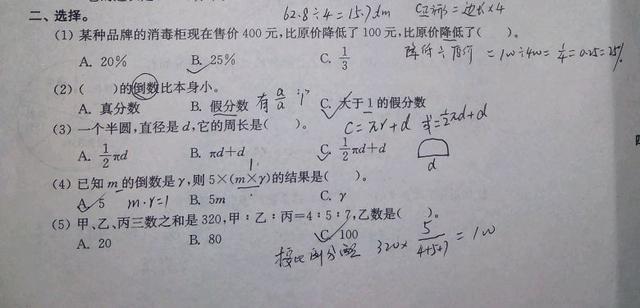 二、选择。 62.8÷4=15.7dm C正方形=边长×4
(1) 某种品牌的消毒柜现在售价400元,比原价降低了100元,比原价降低了( )。
A. 20% B. 25% C. 1/3 降低÷原价=100÷400=1/4=0.25=25%
(2) ( )的倒数比本身小。
A. 真分数 B. 假分数 有 a/a C. 大于1的假分数
(3) 一个半圆,直径是d,它的周长是( )。 C=πr+d 或=1/2πd+d
A. 1/2πd B. πd+d C. 1/2πd+d d
(4) 已知m的倒数是γ,则5×(m×γ)的结果是( )。 1
A. 5 m·γ=1 B. 5m C. γ
(5) 甲、乙、丙三数之和是320,甲:乙:丙=4:5:7,乙数是( )。
A. 20 B. 80 C. 100
按比例分配 320×5/(4+5+7)=100